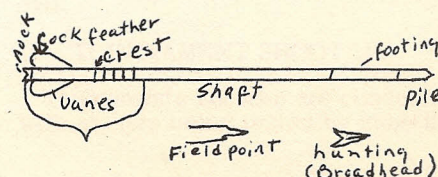 nock
cock feather
crest
footing
vanes
shaft
pile
Fieldpoint
hunting
(Broadhead)